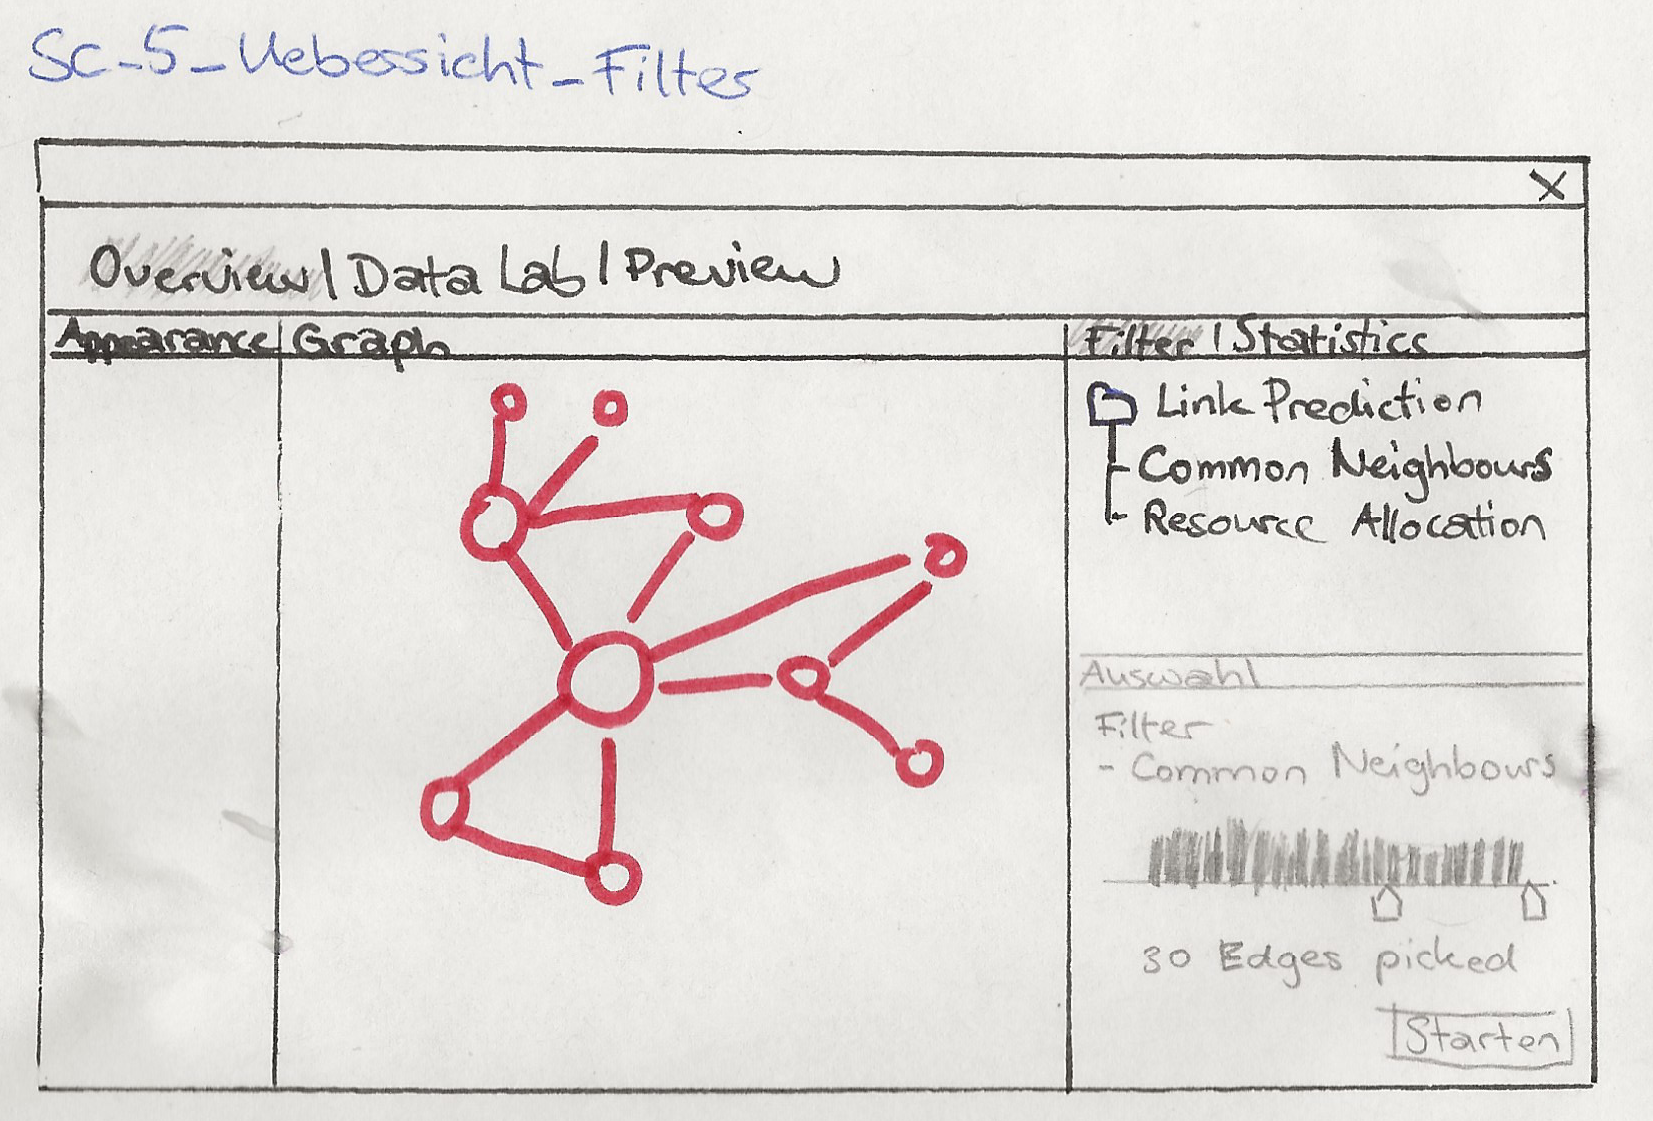 Sc_5_Uebersicht_Filter
X
Overview | Data Lab | Preview
Appearance
Graph
Filter | Statistics
Link Prediction
- Common Neighbours
- Resource Allocation
Auswahl
Filter
- Common Neighbours
30 Edges picked
Starten